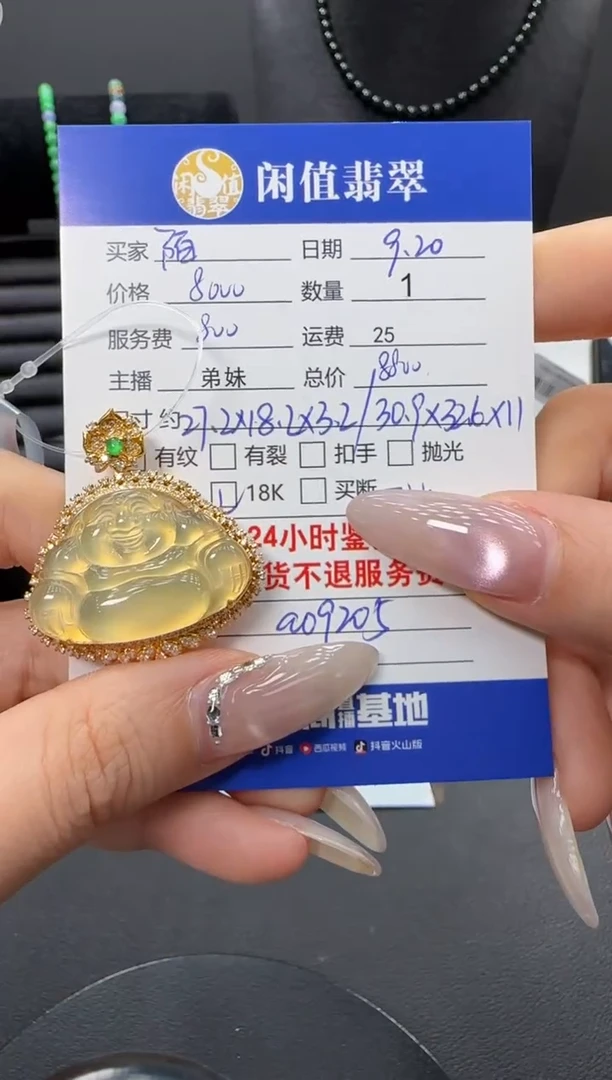 闲值翡翠 闲值翡翠
买家 陌 日期 9.20
价格 8000 数量 1
服务费 800 运费 25
主播 弟妹 总价 8800
寸 约 27.2X18.2X3.2/30.9X32.6X11
有纹 有裂 扣手 抛光
18K 买断
24小时鉴
货不退服务费
a09205
播基地
抖音 西瓜视频 抖音火山版